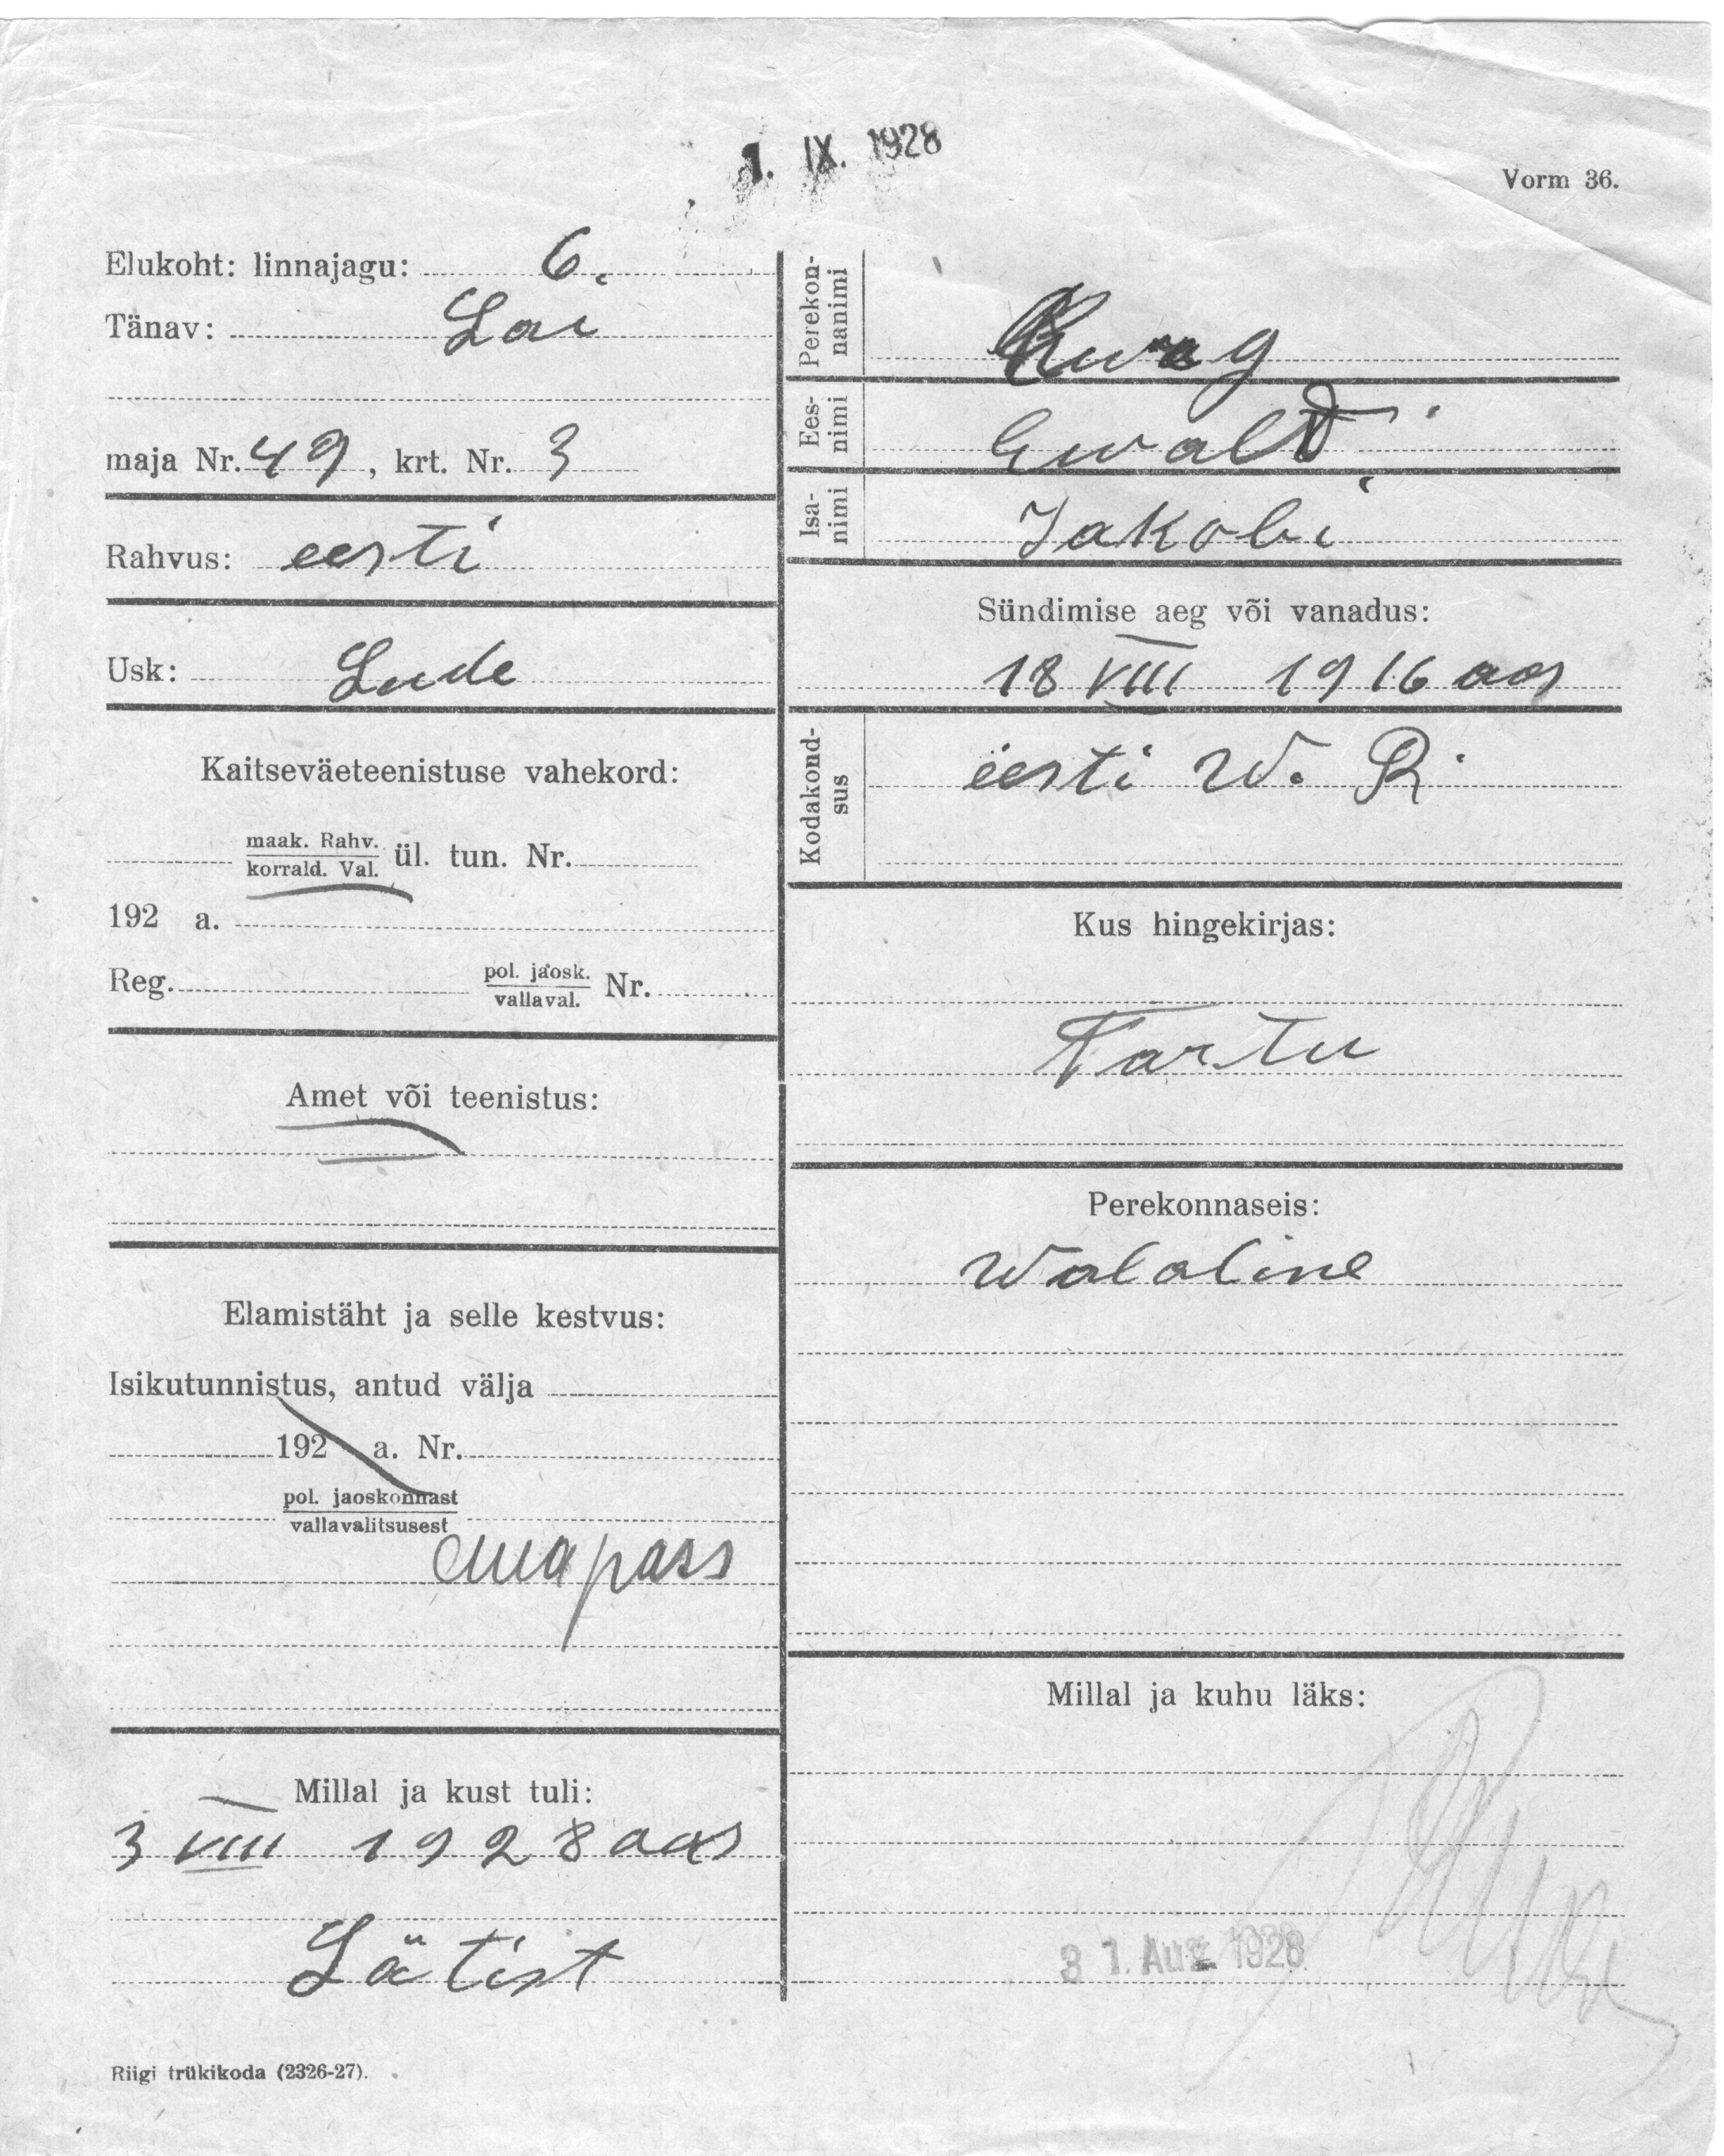 1. IX. 1928
Vorm 36.
Elukoht: linnajagu: 6.
Tänav: Lai
maja Nr. 49, krt. Nr. 3
Rahvus: eesti
Usk: Lude
Kaitseväeteenistuse vahekord:
maak. Rahv.
korrald. Val.
ül. tun. Nr.
192 a.
Reg. pol. jaosk. Nr.
vallaval.
Amet või teenistus:
Elamistäht ja selle kestvus:
Isikutunnistus, antud välja
192 a. Nr.
pol. jaoskonnast
vallavalitsusest
emapass
Millal ja kust tuli:
3 VIII 1928 aas
Lätist
Riigi trükikoda (2326-27).
Perekon-
nanimi
Ees-
nimi
Ewald
Isa-
nimi
Jakobi
Sündimise aeg või vanadus:
18 VIII 1916 aas
Kodakond-
sus
eesti W. R.
Kus hingekirjas:
Tartu
Perekonnaseis:
Walaline
Millal ja kuhu läks:
31. Aug. 1928